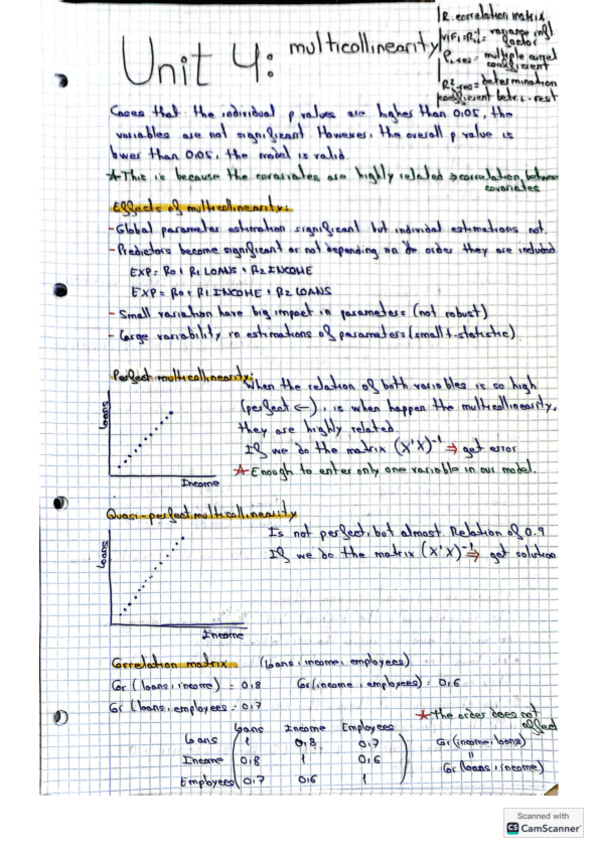 Unit 4: multicollinearity
R. correlation matrix
VIFi = Rii⁻¹ variance infl factor
Pi.res = multiple correl coefficient
R²i.res = determination
coefficient betw. i - rest
Cases that the individual p values are higher than 0,05, the
variables are not significant. However, the overall p value is
lower than 0,05, the model is valid.
★This is because the covariates are highly related → correlation between
covariates
Effects of multicollinearity:
- Global parameter estimation significant but individual estimations not.
- Predictors become significant or not depending on the order they are included
EXP = B0 + B1 LOANS + B2 INCOME
EXP = B0 + B1 INCOME + B2 LOANS
- Small variation have big impact in parameters (not robust)
- Large variability in estimations of parameters (small t-statistic)
Perfect multicollinearity:
When the relation of both variables is so high
(perfect ←), is when happen the multicollinearity,
they are highly related.
If we do the matrix (X'X)⁻¹ ⇒ get error
★ Enough to enter only one variable in our model.
Loans
Income
Quasi-perfect multicollinearity
Is not perfect, but almost. Relation of 0.9
If we do the matrix (X'X)⁻¹ ⇒ get solution
Loans
Income
Correlation matrix (loans, income, employees)
Cor (loans, income) = 0,8 Cor (income, employees) = 0,6
Cor (loans, employees = 0,7
★ The order does not
affect
Loans Income Employees
Loans 1 0,8 0,7
Income 0,8 1 0,6
Employees 0,7 0,6 1
Cor (income, loans)
=
Cor (loans, income)
Scanned with
CS CamScanner